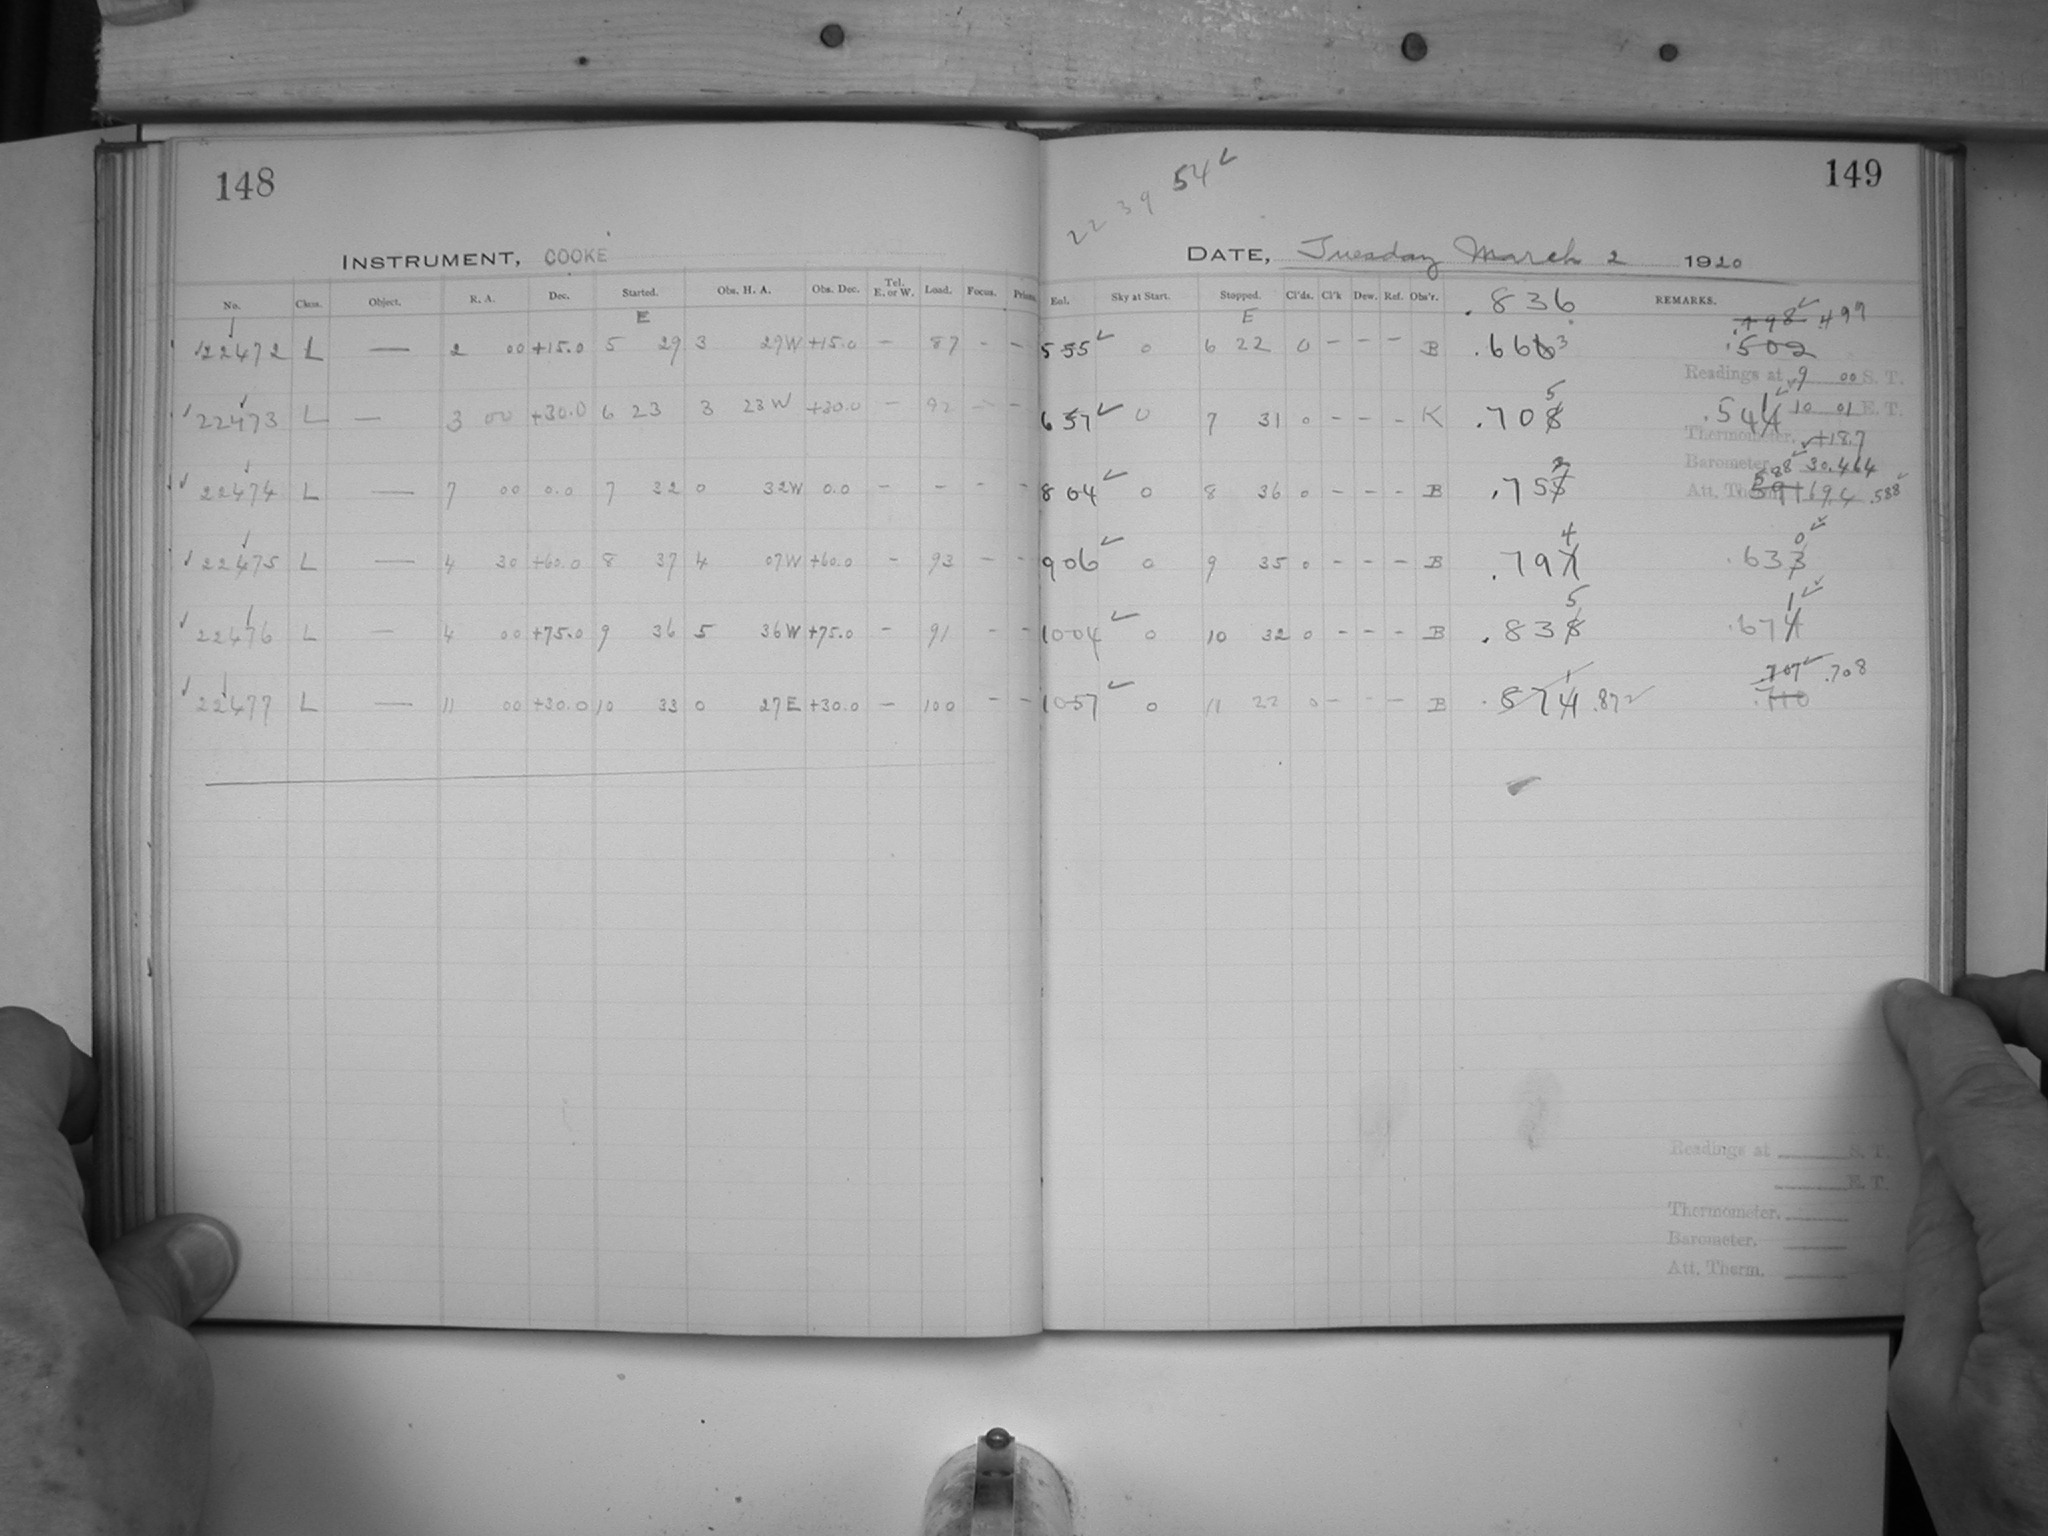 148
INSTRUMENT, COOKE
No. Class. Object. R. A. Dec. Started. Obs. H. A. Obs. Dec. Tel. E. or W. Load. Focus.
E
22472 L — 2 00 +15.0 5 29 3 29W +15.0 – 87 – –
22473 L — 3 00 +30.0 6 23 3 23W +30.0 – 92 – –
22474 L — 7 00 0.0 7 32 0 32W 0.0 – – – –
22475 L — 4 30 +60.0 8 37 4 07W +60.0 – 93 – –
22476 L — 4 00 +75.0 9 36 5 36W +75.0 – 91 – –
22477 L — 11 00 +30.0 10 33 0 27E +30.0 – 100 – –
149
22 39 54 ✓
DATE, Tuesday March 2 1920
Sky at Start. Stopped. Cl'ds. Cl'k Dew. Ref. Obs'r. .836 REMARKS.
E
555 ✓ 0 6 22 0 – – – B .666 3 .502 .498 ✓ .499
Readings at 9 00 S. T.
657 ✓ 0 7 31 0 – – – K .708 5 .544 10 01 E. T.
Thermometer. +18.7
Barometer. 30.464
804 ✓ 0 8 36 0 – – – B .758 2 591 588 ✓ .588
Att. Therm. 69.4
906 ✓ 0 9 35 0 – – – B .797 4 .633 0 ✓
1004 ✓ 0 10 32 0 – – – B .838 5 .674 1 ✓
1057 ✓ 0 11 22 0 – – – B .874 1 .872 ✓ .710 .707 ✓ .708
Readings at S. T.
E. T.
Thermometer.
Barometer.
Att. Therm.